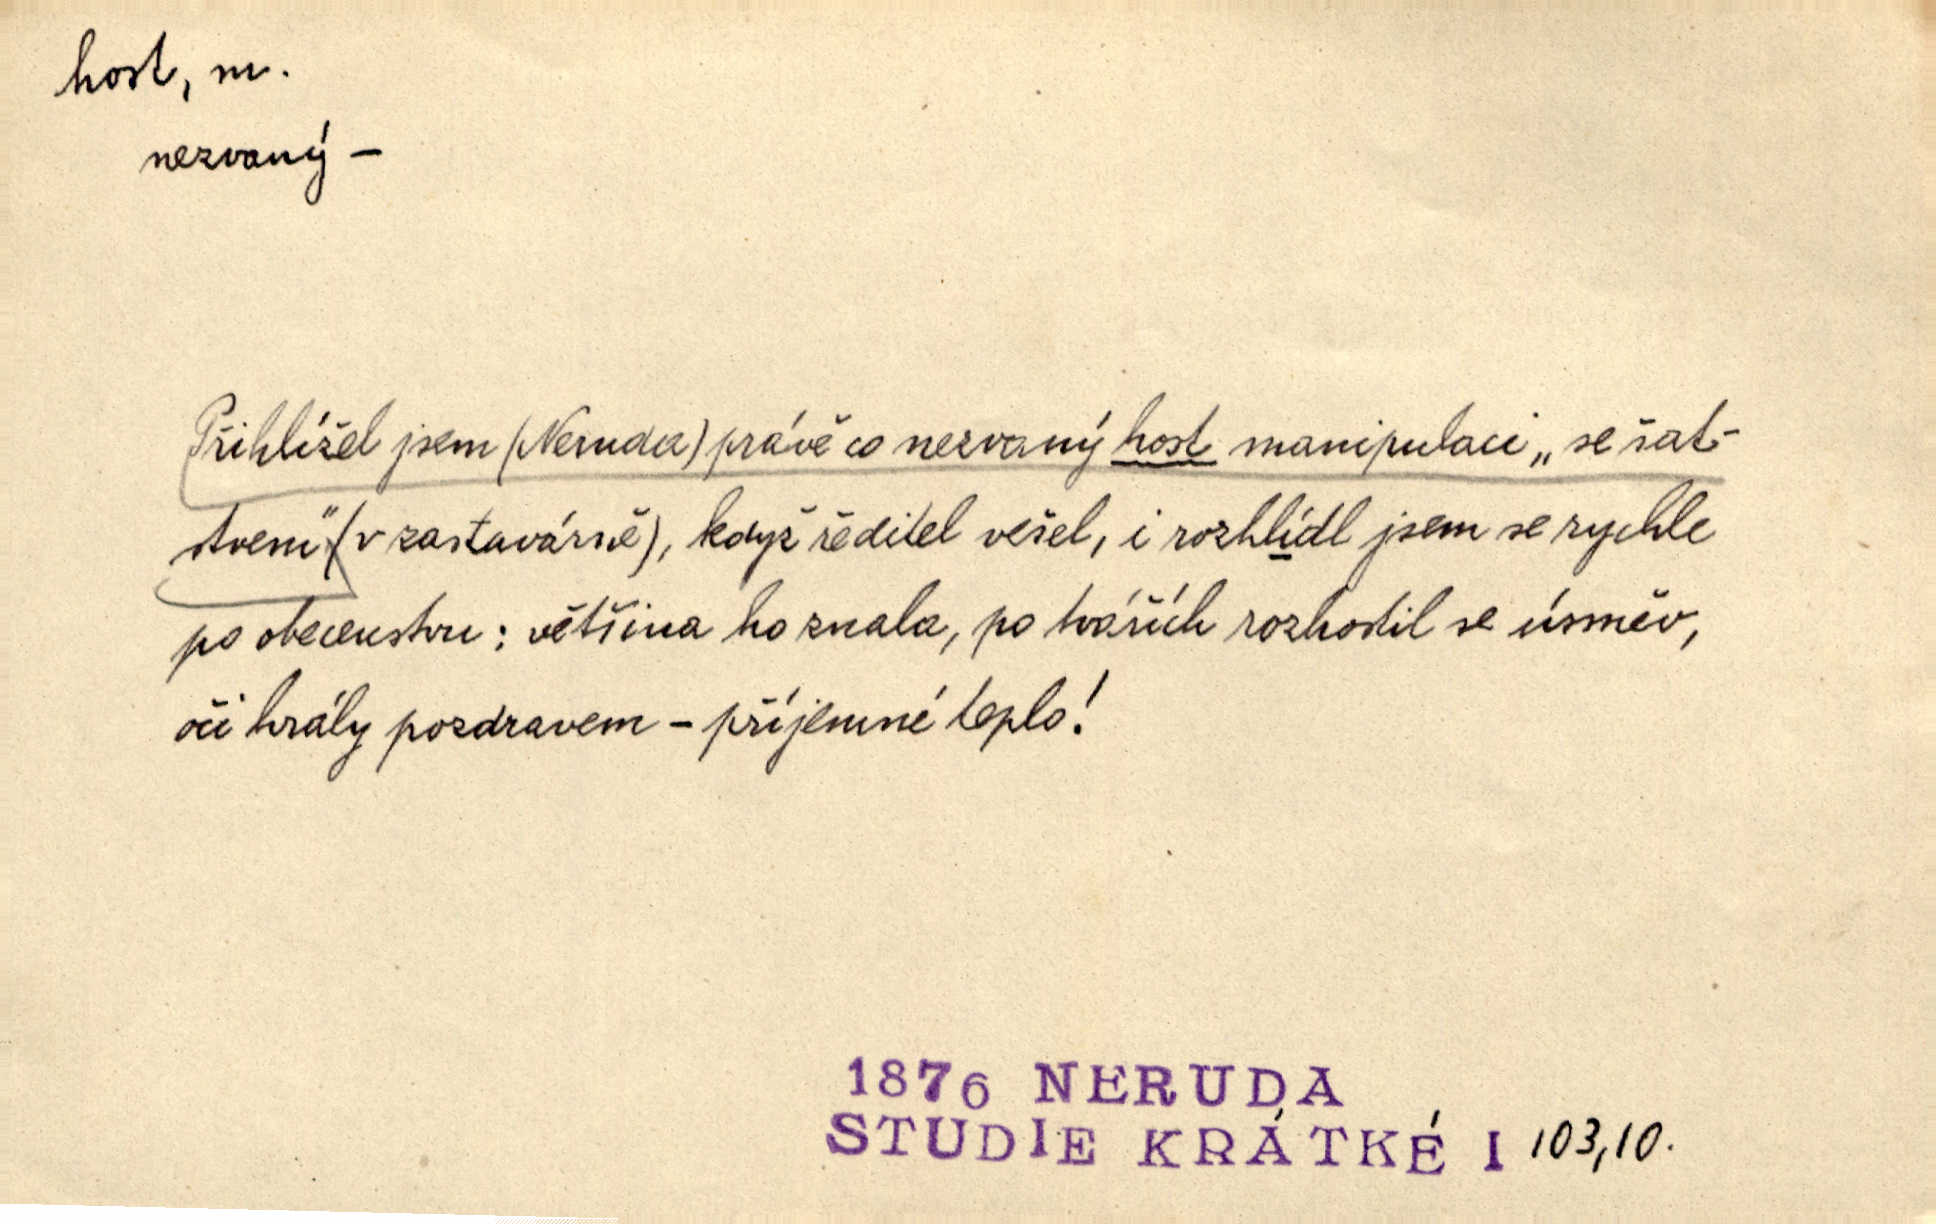 host, m.
nezvaný –
Přihlížel jsem (Neruda) právě co nezvaný host manipulaci „se šat-
stvem" (v zastavárně), když ředitel vešel, i rozhlídl jsem se rychle
po obecenstvu: většina ho znala, po tvářích rozhostil se úsměv,
oči hrály pozdravem – příjemné teplo!
1876 NERUDA
STUDIE KRÁTKÉ I 103,10.